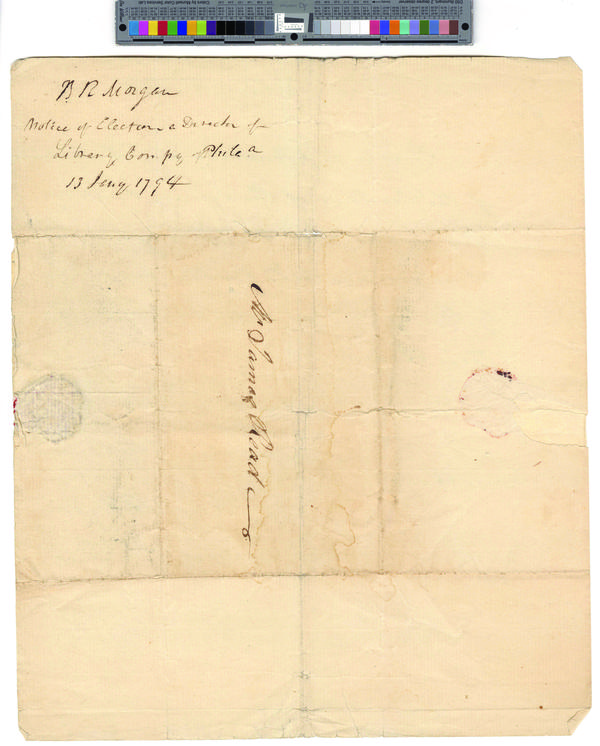 B R Morgan
Notice of Election a Director of
Library Compy of Phila
13 Jany 1794
Mr. James Read